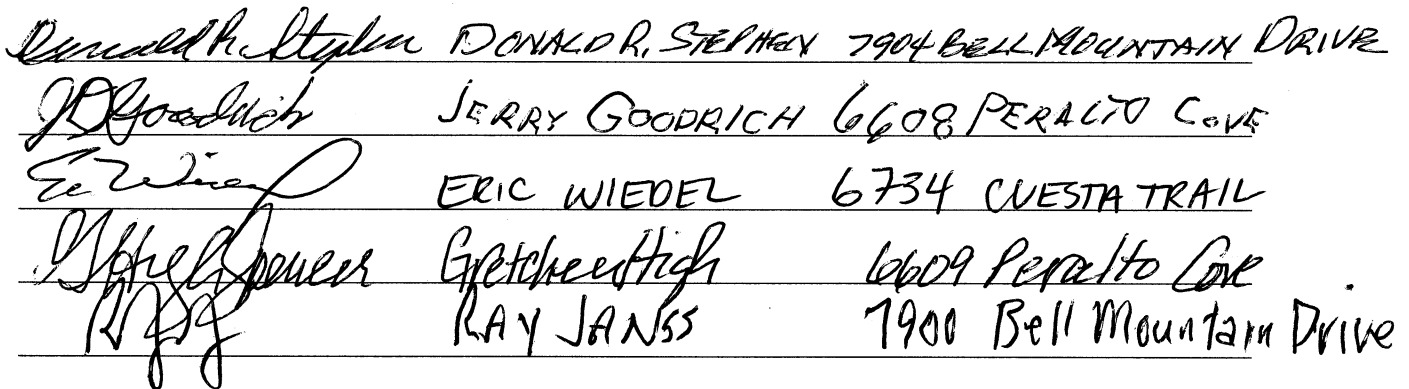 Donald R. Stephen DONALD R. STEPHEN 7904 BELL MOUNTAIN DRIVE
JD Goodrich JERRY GOODRICH 6608 PERALTO COVE
ERIC WIEDEL 6734 CUESTA TRAIL
Gretchen High 6609 Peralto Cove
RAY JANSS 7900 Bell Mountain Drive